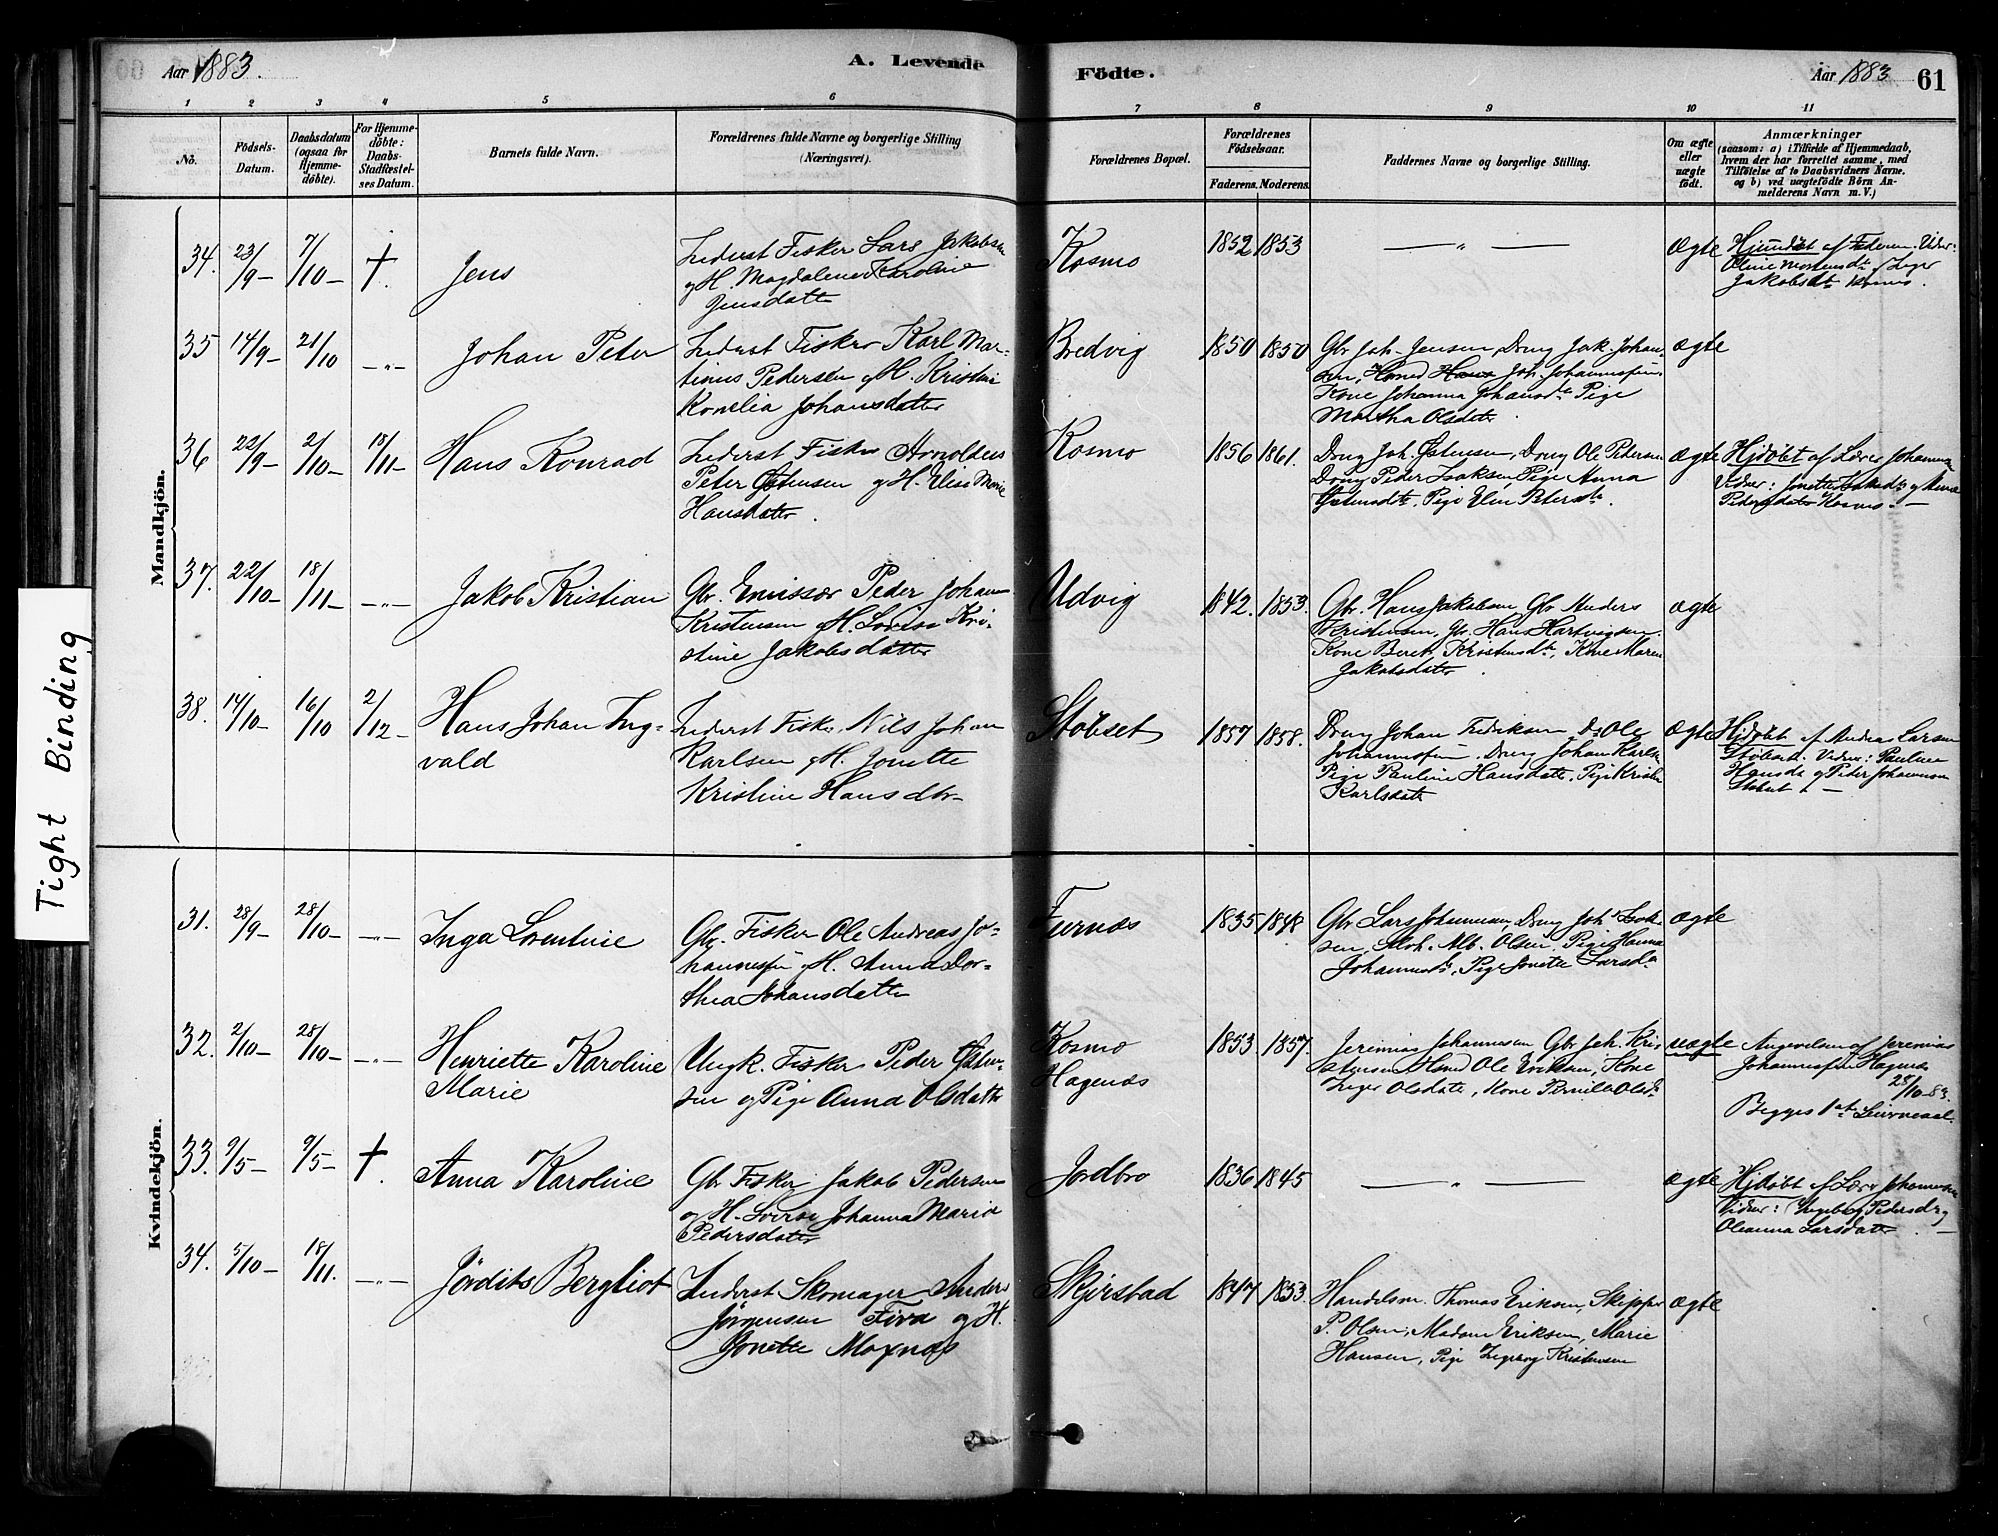 Aar 1883.
A. Levende
Födte.
Aar 1883
61
1 2 3 4 5 6 7 8 9 10 11
No.
Födsels-
Datum.
Daabsdatum
(ogsaa for
Hjemme-
döbte).
For Hjemme-
döbte:
Daabs-
Stadfæstel-
ses Datum.
Barnets fulde Navn.
Forældrenes fulde Navne og borgerlige Stilling
(Næringsvei).
Forældrenes Bopæl.
Forældrenes
Födselsaar.
Faderens. Moderens.
Faddernes Navne og borgerlige Stilling.
Om ægte
eller
uægte
födt.
Anmærkninger
(saasom: a) i Tilfælde af Hjemmedaab,
hvem der har forrettet samme, med
Tilföielse af to Daabsvidners Navne.
og b) ved uægtefödte Börn An-
melderens Navn m. V.)
Tight Binding
Mandkjön.
34. 23/9- 7/10- † Jens
Inderst Fisker Lars Jakobsen
og H. Magdalena Karoline
Jensdatter
Kosmo
1852 1853
— „ —
ægte
af Faderen. Vidner:
Oline
Jakobsdtr Kosmo.
35 14/9- 21/10 —„— Johan Peter
Inderst Fisker Karl Mar-
tinus Pedersen og H. Kristine
Kornelia Johansdatter
Bredvig
1850 1850
Gbr Joh. Jensen, Dreng Jak. Johan-
sen, Hans Joh. Johannessen.
Kone Johanna Johansdtr Pige
Martha Olsdatter.
ægte
36 22/9- 2/10- 18/11- Hans Konrad
Inderst Fisker Arnoldus
Peter Østensen og H. Elise Marie
Hansdatter.
Kosmo
1856 1861.
Dreng Joh. Østensen, Dreng Ole Pedersen
Dreng Peder Isaksen Pige Anna
Østensdtr. Pige Elen Petersdtr.
ægte
Hjdöbt af Lærer Johannesen
Vidner: Jonette
Pedersdatter Kosmo. —
37. 22/10- 18/11- —„— Jakob Kristian
Gbr. Emissær Peder Johan
Kristensen og H. Lovise Kri-
stine Jakobsdatter
Udvig
1842. 1853.
Gbr. Hans Jakobsen Gbr Anders
Kristensen, Gbr. Hans Hartvigsen.
Kone Beret Kristensdtr, Kone Maren
Jakobsdatter.
ægte
38. 14/10- 16/10 2/12- Hans Johan Ing-
vald
Inderst Fisker Nils Johan
Karlsen og H. Jonette
Kristine Hansdtr-
Stöbset
1857 1858.
Dreng Johan Fredriksen Do Ole
Johannessen. Dreng Johan Karlsen
Pige Pauline Hansdatter. Pige
Karlsdatter
ægte
Hjdöbt af Andrea Larsen
Stöbset. Vidner: Pauline
Hansda og Peder Johannesen
Stöbset. —
Kvindekjön.
31. 28/9- 28/10- —„— Inga Lorentine
Gbr. Fisker Ole Andreas Jo-
hannessen og H. Anna Dor-
thea Johansdatter
Furnæs
1835 1842
Gbr Lars Johannesen, Dreng Joh. Isak-
sen, Alb. Olsen, Pige Hanna
Johannesdtr, Pige Jonette Larsdtr
ægte
32. 2/10- 28/10- —„— Henriette Karoline
Marie
Ungk. Fisker Peder Østen-
sen og Pige Anna Olsdatter
Kosmo
Hagenæs
1853 1857.
Jeremias Johannesen Gbr Joh. Kri-
stensen Ole Eriksen, Kone
Inger Olsdatter, Kone Pernille Olsdtr
uægte
Angivelsen af Jeremias
Johannessen Hagenæs
25/10-83.
Begges 1ste Leiermaal.
33. 9/5- 9/5- †. Anna Karoline
Gbr Fisker Jakob Pedersen
og H. Lovise Johanna Maria
Pedersdatter
Jordbro
1836 1845
— „ —
ægte
Hjdöbt af Lærer Johannesen
Vidner: Ingeborg Pedersdr og
Oleanna Larsdatter. —
34. 5/10- 18/11. —„— Jördits Bergliot
Inderst Skomager Anders
Jörgensen Fiva og H.
Jonette Moxnæs
Skjerstad
1847 1853.
Handelsm. Thomas Eriksen, Skipper
P. Olsen, Madam Eriksen, Marie
Hansen, Pige Ingeborg Kristensen
ægte